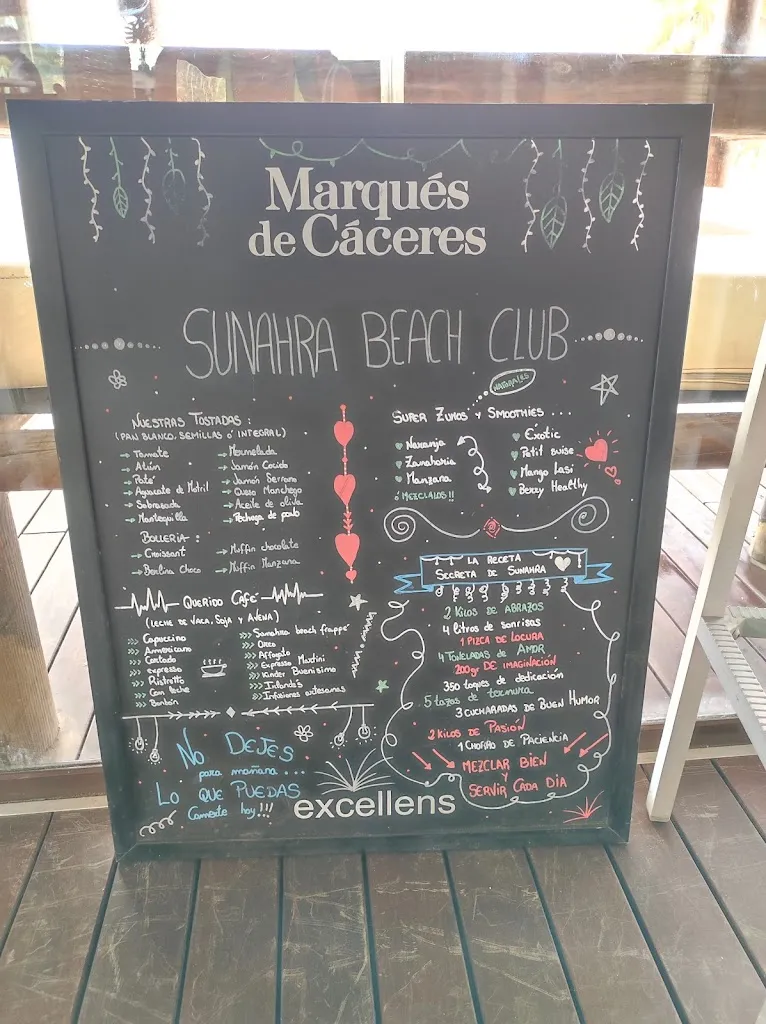 Marqués
de Cáceres
SUNAHRA BEACH CLUB
NUESTRAS TOSTADAS :
(PAN BLANCO, SEMILLAS Ó INTEGRAL)
→ Tomate
→ Atún
→ Paté
→ Aguacate de Motril
→ Sobrasada
→ Mantequilla
→ Mermelada
→ Jamón Cocido
→ Jamón Serrano
→ Queso Manchego
→ Aceite de oliva
→ Pechuga de pavo
BOLLERIA :
→ Croissant
→ Berlina Choco
→ Muffin chocolate
→ Muffin Manzana
QUERIDO CAFÉ
(LECHE DE VACA, SOJA Y AVENA)
>>> Capuccino
>>> Americano
>>> Cortado
>>> expresso
>>> Ristretto
>>> Con leche
>>> Bombón
>>> Sunahra beach frappé
>>> Oreo
>>> Affogato
>>> Expresso Martini
>>> Kinder Buenisimo
>>> Irlandés
>>> Infusiones artesanas
NO DEJES
para mañana ...
LO QUE PUEDAS
Comerte hoy!!!
NATURALES
SUPER ZUMOS Y SMOOTHIES ...
Naranja
Zanahoria
Manzana
ó MEZCLALOS !!
Exotic
Petit Suise
Mango Lasi
Berry Healthy
LA RECETA
SECRETA DE SUNAHRA
2 KILOS DE ABRAZOS
4 litros de sonrisas
1 PIZCA DE LOCURA
4 TONELADAS DE AMOR
200gr DE IMAGINACIÓN
350 toques de dedicación
5 tazas de ternura
3 CUCHARADAS DE BUEN HUMOR
2 KILOS DE PASIÓN
1 CHORRO DE PACIENCIA
MEZCLAR BIEN
Y
SERVIR CADA DÍA
excellens